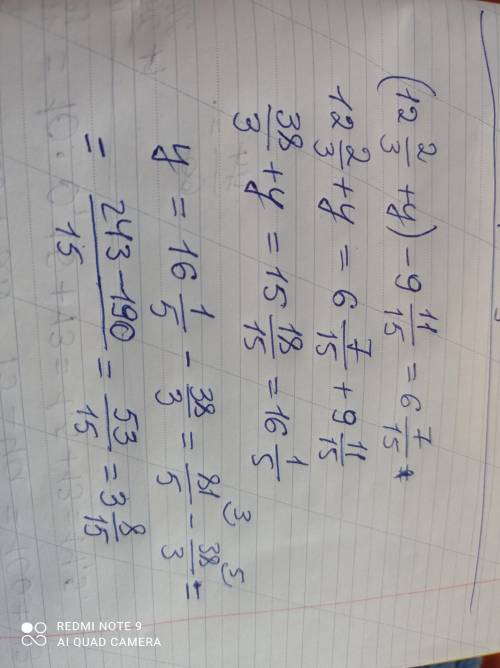 (12 2/3 + y) - 9 11/15 = 6 7/15
12 2/3 + y = 6 7/15 + 9 11/15
38/3 + y = 15 18/15 = 16 1/5
y = 16 1/5 - 38/3 = 81/5 3 - 38/3 5 =
= 243-190/15 = 53/15 = 3 8/15
REDMI NOTE 9
AI QUAD CAMERA